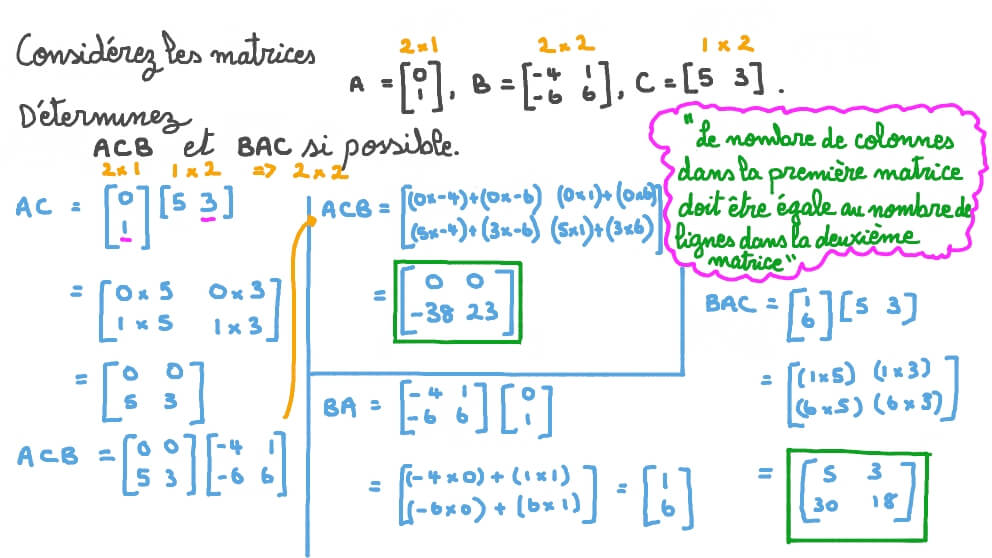 Considérez les matrices
2×1 2×2 1×2
A = [0 1], B = [-4 1 -6 6], C = [5 3].
Déterminez
ACB et BAC si possible.
"Le nombre de colonnes
dans la première matrice
doit être égale au nombre de
lignes dans la deuxième
matrice"
2×1 1×2 => 2×2
AC = [0 1] [5 3]
= [0×5 0×3
1×5 1×3]
= [0 0
5 3]
ACB = [0 0 5 3] [-4 1 -6 6]
ACB = [(0×-4)+(0×-6) (0×1)+(0×6)
(5×-4)+(3×-6) (5×1)+(3×6)]
= [0 0
-38 23]
BA = [-4 1 -6 6] [0 1]
= [(-4×0)+(1×1)
(-6×0)+(6×1)] = [1 6]
BAC = [1 6] [5 3]
= [(1×5) (1×3)
(6×5) (6×3)]
= [5 3
30 18]